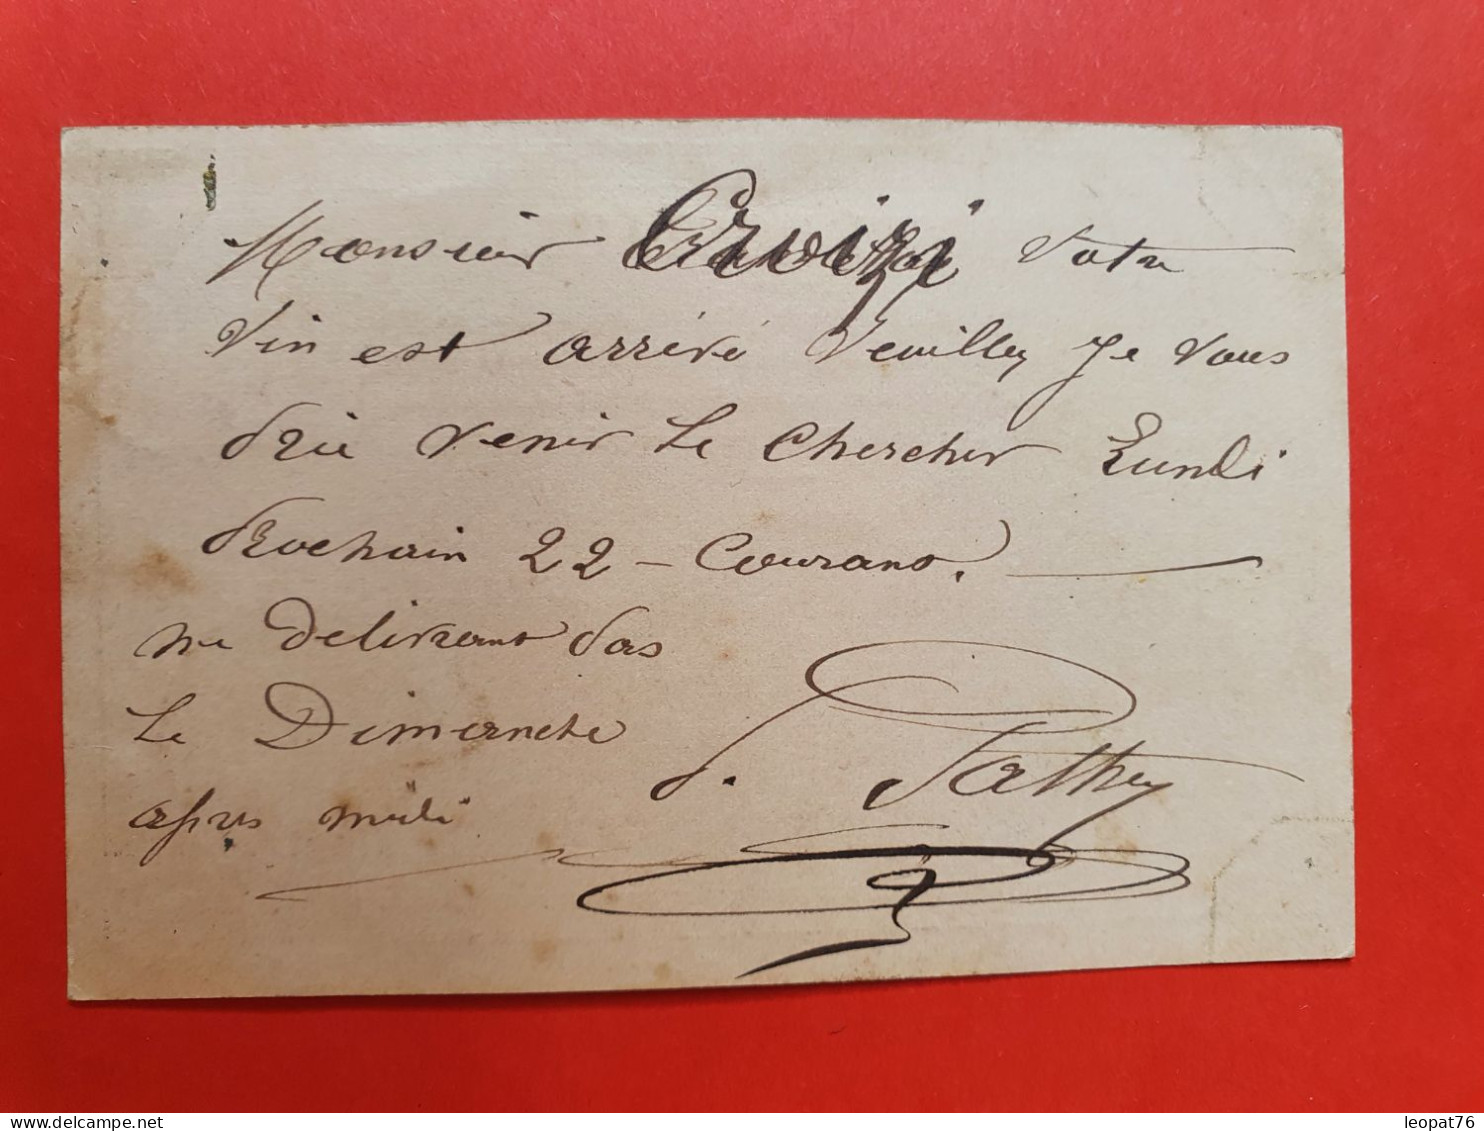 Monsieur votre
vin est arrivé Veuillez Je vous
prie venir Le Chercher Lundi
Prochain 22 – Courant.
ne Delivrant pas
Le Dimanche
apres midi
P. Pathey
leopat76